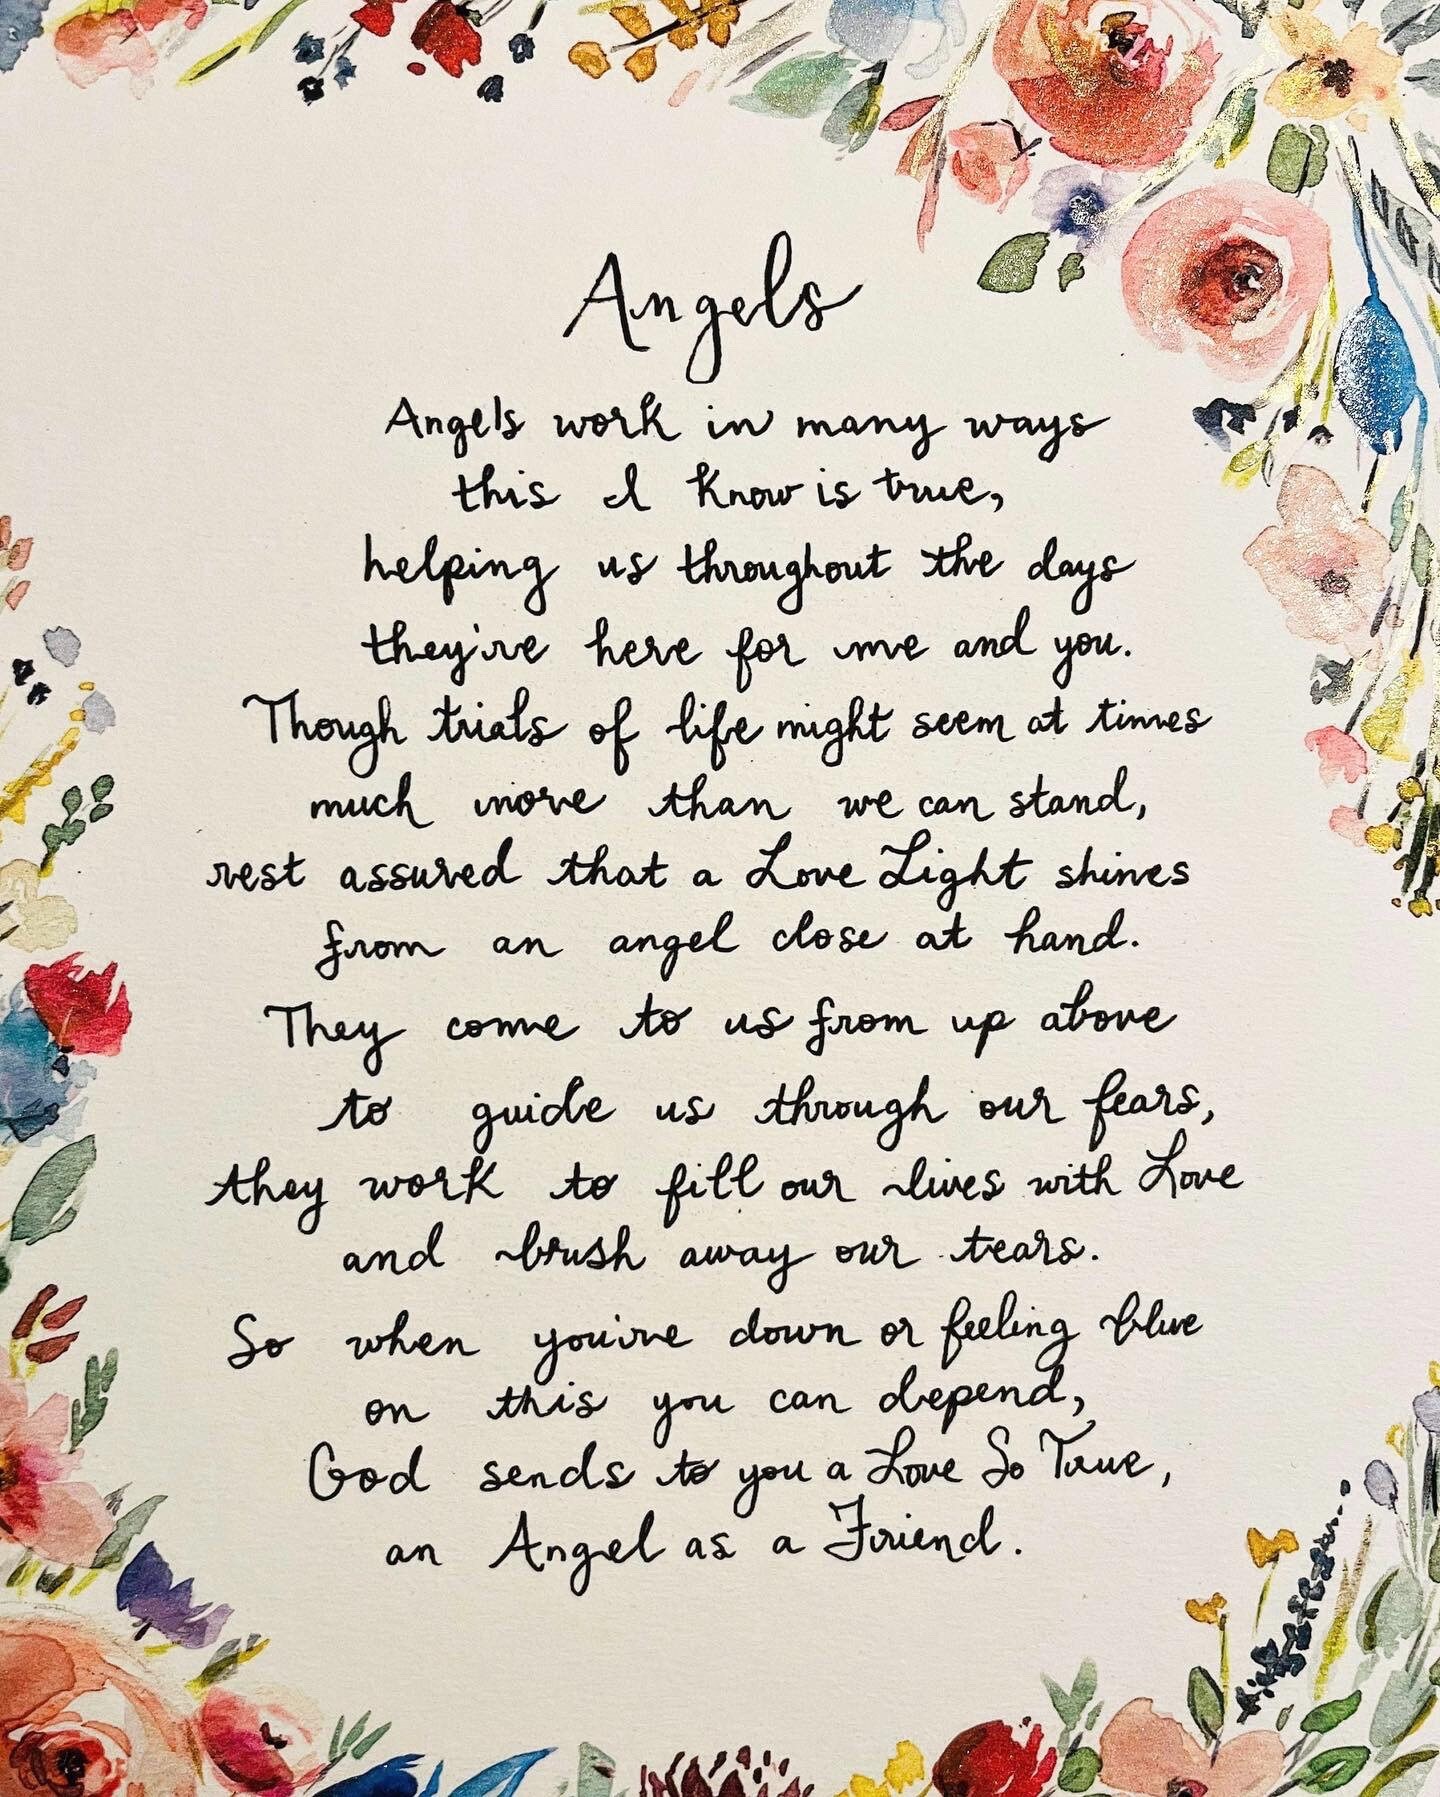 Angels
Angels work in many ways
this I know is true,
helping us throughout the days
they're here for me and you.
Though trials of life might seem at times
much more than we can stand,
rest assured that a Love Light shines
from an angel close at hand.
They come to us from up above
to guide us through our fears,
they work to fill our lives with Love
and brush away our tears.
So when you're down or feeling blue
on this you can depend,
God sends to you a Love So True,
an Angel as a Friend.